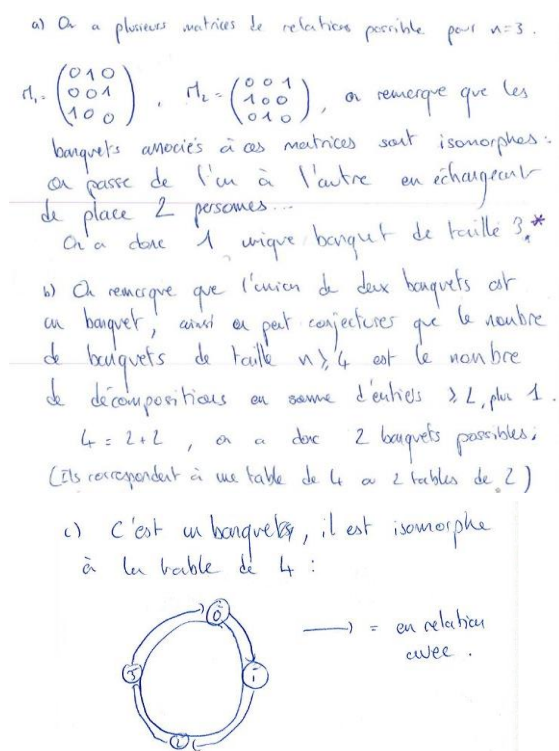 a) On a plusieurs matrices de relations possible pour n=3.
M₁ = (0 1 0 / 0 0 1 / 1 0 0), M₂ = (0 0 1 / 1 0 0 / 0 1 0), on remarque que les
banquets associés à ces matrices sont isomorphes :
on passe de l'un à l'autre en échangeant
de place 2 personnes...
On a donc 1 unique banquet de taille 3.*
b) On remarque que l'union de deux banquets est
un banquet, ainsi on peut conjecturer que le nombre
de banquets de taille n ≥ 4 est le nombre
de décompositions en somme d'entiers ≥ 2, plus 1.
4 = 2+2, on a donc 2 banquets possibles,
(Ils correspondent à une table de 4 ou 2 tables de 2)
c) C'est un banquet, il est isomorphe
à la table de 4 :
0
⟶ = en relation
avec.
3
1
2